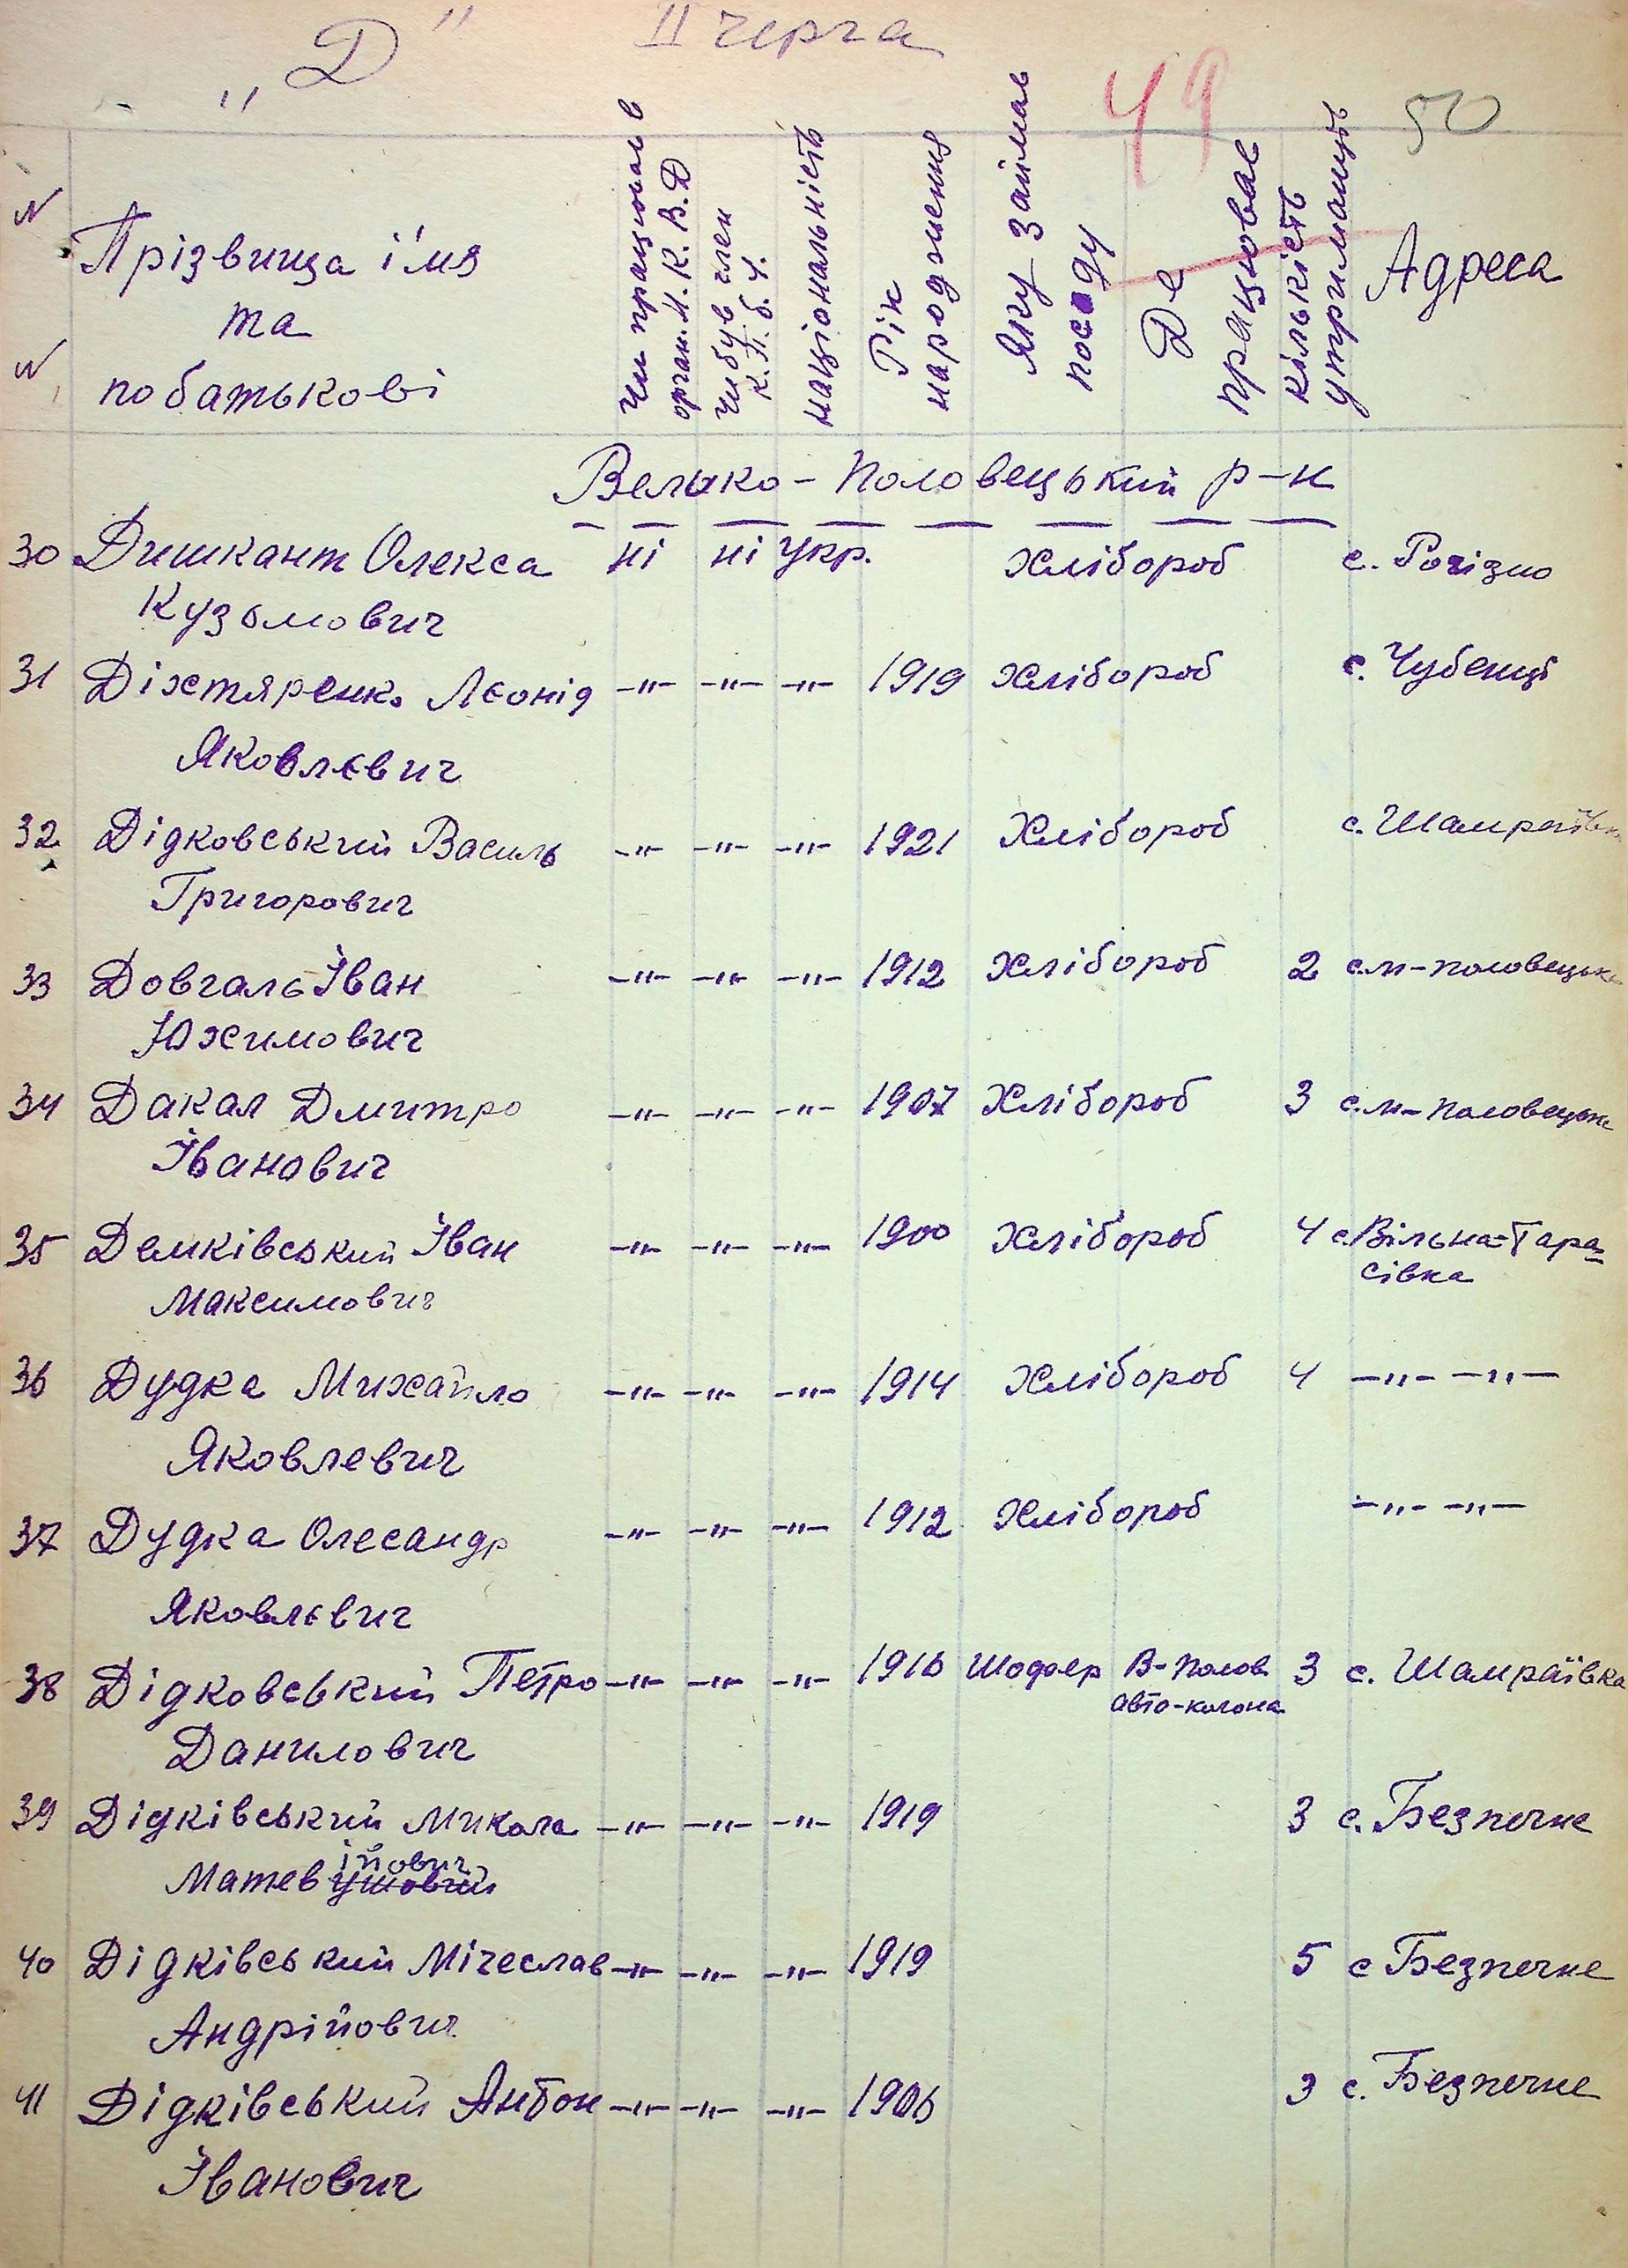 „Д" II черга
49 50
N N
Прізвища і'мя
та
по батькові
Чи працював в
орган. Н.К.В.Д
Чи був член
К.П.б.У.
національність
Рік
народження
Яку займав
посаду
Де
працював
кількість
утриманців
Адреса
Велико-Половецький р-н
30 Дишкант Олекса ні ні Укр. Хлібороб с. Рогізно
Кузьмович
31 Діхтяренко Леонід -"- -"- -"- 1919 Хлібороб с. Чубенці
Яковлєвич
32 Дідковський Василь -"- -"- -"- 1921 Хлібороб с. Шамраївка
Григорович
33 Довгаль Іван -"- -"- -"- 1912 Хлібороб 2 с.м-половецьке
Юхимович
34 Дакал Дмитро -"- -"- -"- 1907 Хлібороб 3 с.м-половецьке
Іванович
35 Демківський Іван -"- -"- -"- 1900 Хлібороб 4 с.Вільна-Тара-
сівка
Максимович
36 Дудка Михайло -"- -"- -"- 1914 Хлібороб 4 -"- -"-
Яковлевич
37 Дудка Олесандр -"- -"- -"- 1912 Хлібороб -"- -"-
Яковлєвич
38 Дідковський Петро -"- -"- -"- 1916 Шофер В-Полов. 3 с. Шамраївка
авто-колона
Данилович
39 Дідківський Микола -"- -"- -"- 1919 3 с. Безпечне
ійович
Матев
40 Дідківський Мічеслав -"- -"- -"- 1919 5 с Безпечне
Андрійович
41 Дідківський Антон -"- -"- -"- 1906 3 с. Безпечне
Іванович